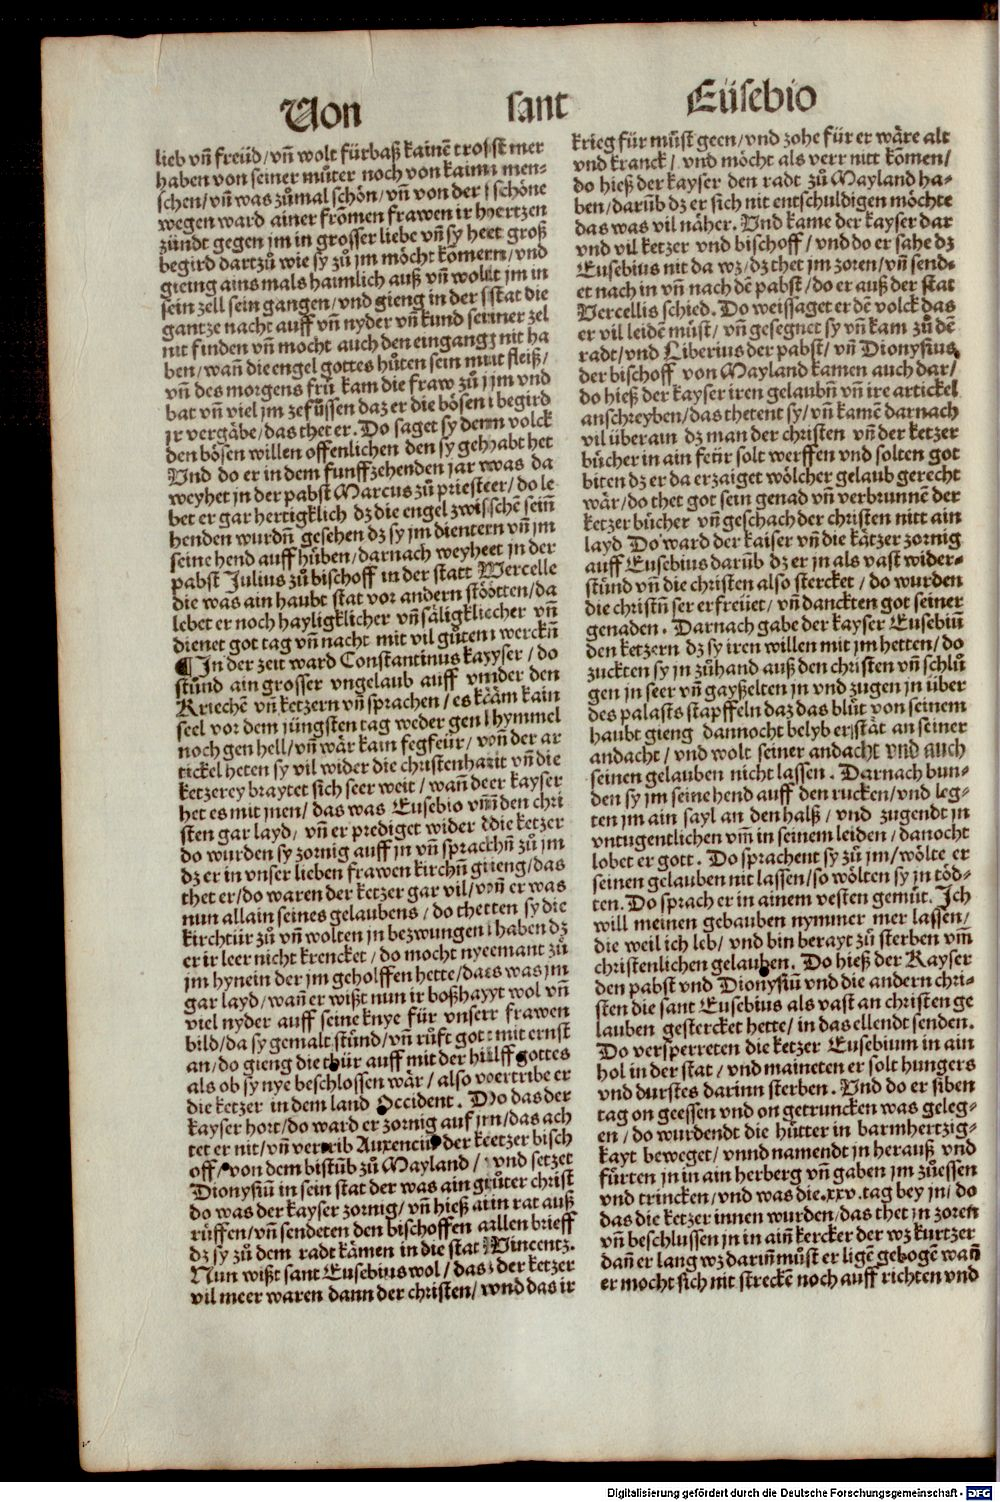 Von sant Eüsebio
lieb vñ freüd/vñ wolt fürbaß kainē trosst mer
haben von seiner můter noch von kaim men-
schen/vñ was zůmal schön/vñ von der schöne
wegen ward ainer frõmen frawen ir hertzen
zündt gegen im in grosser liebe vñ sy heet groß
begird dartzů wie sy zů jm möcht kõmem/vnd
gieing ains mals haimlich auß vñ wollt jm in
sein zell sein gangen/vnd gieng in der stat die
gantze nacht auff vñ nyder vñ kund seiner zel
nit finden vñ mocht auch den eingang nit ha
ben/wañ die engel gottes hůten sein mit fleiß/
vñ des morgens frů kam die fraw zů jm vnd
bat vñ viel jm ze fůssen daz er die bösen begird
jr vergäbe/das thet er. Do saget sy dem volck
den bösen willen offenlichen den sy gehabt het
Vnd do er in dem funffzehenden jar was da
weyhet jn der pabst Marcus zů priester/do le
bet er gar hertigklich dz die engel zwischē seiñ
henden wurdñ gesehen dz sy jm dientern vñ jm
seine hend auff hůben/darnach weyheet jn der
pabst Julius zů bischoff in der statt Wercelle
die was ain haubt stat vor andern stötten/da
lebet er noch hayligklicher vñ säligkliccher vñ
dienet got tag vñ nacht mit vil gůten werckñ
¶In der zeit ward Constantinus kayser/do
stůnd ain grosser vngelaub auff vnder den
Kriechē vñ ketzern vñ sprachen/es kääm kain
seel vor dem jüngsten tag weder gen hymmel
noch gen hell/vñ wär kain fegfeür/von der ar
tickel heten sy vil wider die christenhait vñ die
ketzerey braytet sich seer weit/wañ deer kayser
het es mit jnen/das was Eusebio vnnden chri
sten gar layd/vñ er prediget wider die ketzer
do wurden sy zornig auff jn vñ sprachñ zů jm
dz er in vnser lieben frawen kirchñ gieng/das
thet er/do waren der ketzer gar vil/vñ er was
nun allain seines gelaubens/do thetten sy die
kirchtür zů vñ wolten jn bezwungen haben dz
er ir leer nicht krencket/do mocht nyeemant zů
jm hynein der jm geholffen hette/daes was jm
gar layd/wañ er wißt nun ir boßhayyt wol vñ
viel nyder auff seine knye für vnserr frawen
bild/da sy gemalt stůnd/vñ růft got mit ernst
an/do gieng die thür auff mit der hülff gottes
als ob sy nye beschlossen wär/also voertribe er
die ketzer in dem land Occident. Do das der
kayser hort/do ward er zornig auf jm/das ach
tet er nit/vñ vertrib Auxenciũ der keetzer bisch
off/von dem bistůb zů Mayland/vnd setzet
Dionysiũ in sein stat der was ain gůter christ
do was der kayser zornig/vñ hieß ain rat auß
růffen/vñ sendeten den bischoffen aallen brieff
dz sy zů dem radt kämen in die stat Vincentz.
Nun wißt sant Eusebius wol/das der ketzer
vil meer waren dann der christen/vnd das ir
krieg für můst geen/vnd zohe für er wäre alt
vnd kranck/vnd möcht als verr nitt kõmen/
do hieß der kayser den radt zů Mayland ha-
ben/darũb dz er sich nit entschuldigen möchte
das was vil näher. Vnd kame der kayser dar
vnd vil ketzer vnd bischoff/vnd do er sahe dz
Eusebius nit da wz/dz thet jm zoren/vñ send-
et nach in vñ nach dē pabst/do er auß der stat
Vercellis schied. Do weissaget er dē volck das
er vil leidē můst/vñ gesegnet sy vñ kam zů dē
radt/vnd Liberius der pabst/vñ Dionysius
der bischoff von Mayland kamen auch dar/
do hieß der kayser iren gelaubñ vñ ire artickel
anschreyben/das thetent sy/vñ kamē darnach
vil überain dz man der christen vñ der ketzer
bücher in ain feür solt werffen vnd solten got
biten dz er da erzaiget wölcher gelaub gerecht
wär/do thet got sein genad vñ verbrunnē der
ketzer bücher vñ geschach der christen nitt ain
layd Do ward der kaiser vñ die kätzer zornig
auff Eusebius darũb dz er jn als vast wider-
stůnd vñ die christen also stercket/do wurden
die christñ ser erfreüet/vñ danckten got seiner
genaden. Darnach gabe der kayser Eusebiũ
den ketzern dz sy iren willen mit jm hetten/do
zuckten sy jn zůhand auß den christen vñ schlů
gen jn seer vñ gayßelten jn vnd zugen jn über
des palasts stapffeln daz das blůt von seinem
haubt gieng dannocht belyb er stät an seiner
andacht/vnd wolt seiner andacht vnd auch
seinen gelauben nicht lassen. Darnach bun-
den sy jm seine hend auff den rucken/vnd leg-
ten jm ain sayl an den halß/vnd zugendt jn
vntugentlichen vm̃ in seinem leiden/danocht
lobet er gott. Do sprachent sy zů jm/wölte er
seinen gelauben nit lassen/so wölten sy jn töd-
ten. Do sprach er in ainem vesten gemůt. Ich
will meinen gebauben nymmer mer lassen/
die weil ich leb/vnd bin berayt zů sterben vm̃
christenlichen gelauben. Do hieß der Kayser
den pabst vnd Dionysiũ vnd die andern chri-
sten die sant Eusebius als vast an christen ge
lauben gestercket hette/in das ellendt senden.
Do versperreten die ketzer Eusebium in ain
hol in der stat/vnd maineten er solt hungers
vnd durstes darinn sterben. Vnd do er siben
tag on geessen vnd on getruncken was geleg-
en/do wurdendt die hütter in barmhertzig-
kayt beweget/vnnd namendt jn herauß vnd
fürten jn in ain herberg vñ gaben jm zůessen
vnd trincken/vnd was die .xxv. tag bey jn/do
das die ketzer innen wurden/das thet jn zoren
vñ beschlussen jn in ain̄ kercker der wz kurtzer
dañ er lang wz darin̄ můst er ligē gebogē wañ
er mocht sich nit streckē noch auff richten vnd
Digitalisierung gefördert durch die Deutsche Forschungsgemeinschaft - DFG